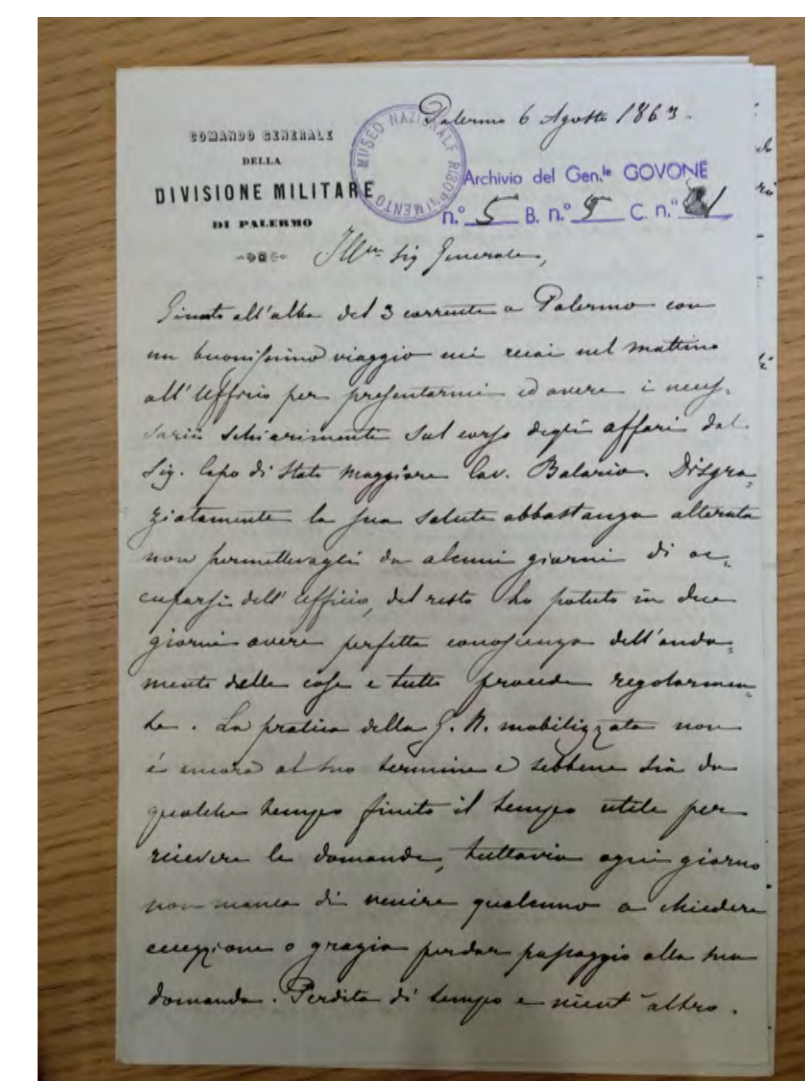 Palermo 6 Agosto 1863.
COMANDO GENERALE
DELLA
DIVISIONE MILITARE
DI PALERMO
MUSEO NAZIONALE RISORGIMENTO
Archivio del Gen.le GOVONE
n.º 5 B. n.º 5 C. n.º 21
Ill.mo Sig Generale,
Giunto all'alba del 3 corrente a Palermo con
un buonissimo viaggio mi recai nel mattino
all'Ufficio per presentarmi ed avere i neces-
sarii schiarimenti sul corso degli affari dal
Sig. Capo di Stato Maggiore Cav. Balario. Disgra-
ziatamente la sua salute abbastanza alterata
non permettevagli da alcuni giorni di oc-
cuparsi dell'Ufficio, del resto ho potuto in due
giorni avere perfetta conoscenza dell'anda-
mento delle cose e tutto procede regolarmen-
te. La pratica della G. N. mobilizzata non
è ancora al suo termine e sebbene sia da
qualche tempo finito il tempo utile per
ricevere le domande, tuttavia ogni giorno
non manca di venire qualcuno a chiedere
eccezione o grazia per dar passaggio alla sua
domanda. Perdita di tempo e nient'altro.